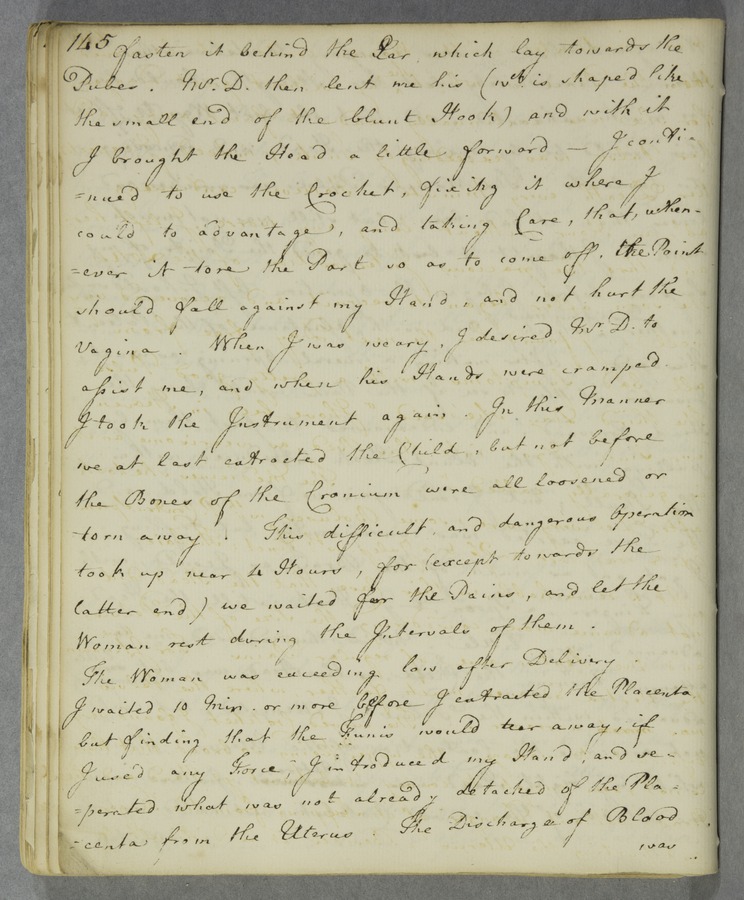 145 fasten it behind the Ear, which lay towards the
Pubes. Mr. D. then lent me his (wch. is shaped like
the small end of the blunt Hook) and with it
I brought the Head a little forward — I conti-
=nued to use the Crochet, fixing it where I
could to advantage, and taking Care, that, when-
=ever it tore the Part so as to come off, the Point
should fall against my Hand, and not hurt the
Vagina. When I was weary, I desired Mr. D. to
assist me, and when his Hands were cramped
I took the Instrument again. In this Manner
we at last extracted the Child, but not before
the Bones of the Cronium were all loosened or
torn away. This difficult and dangerous Operation
took up near 4 Hours, for (except towards the
latter end) we waited for the Pains, and let the
Woman rest during the Intervals of them.
The Woman was exceeding low after Delivery.
I waited 10 Min. or more before I extracted the Placenta
but finding that the Funis would tear away, if
I used any Force, I introduced my Hand, and se-
=perated what was not already detached of the Pla-
=centa from the Uterus. The Discharge of Blood
was